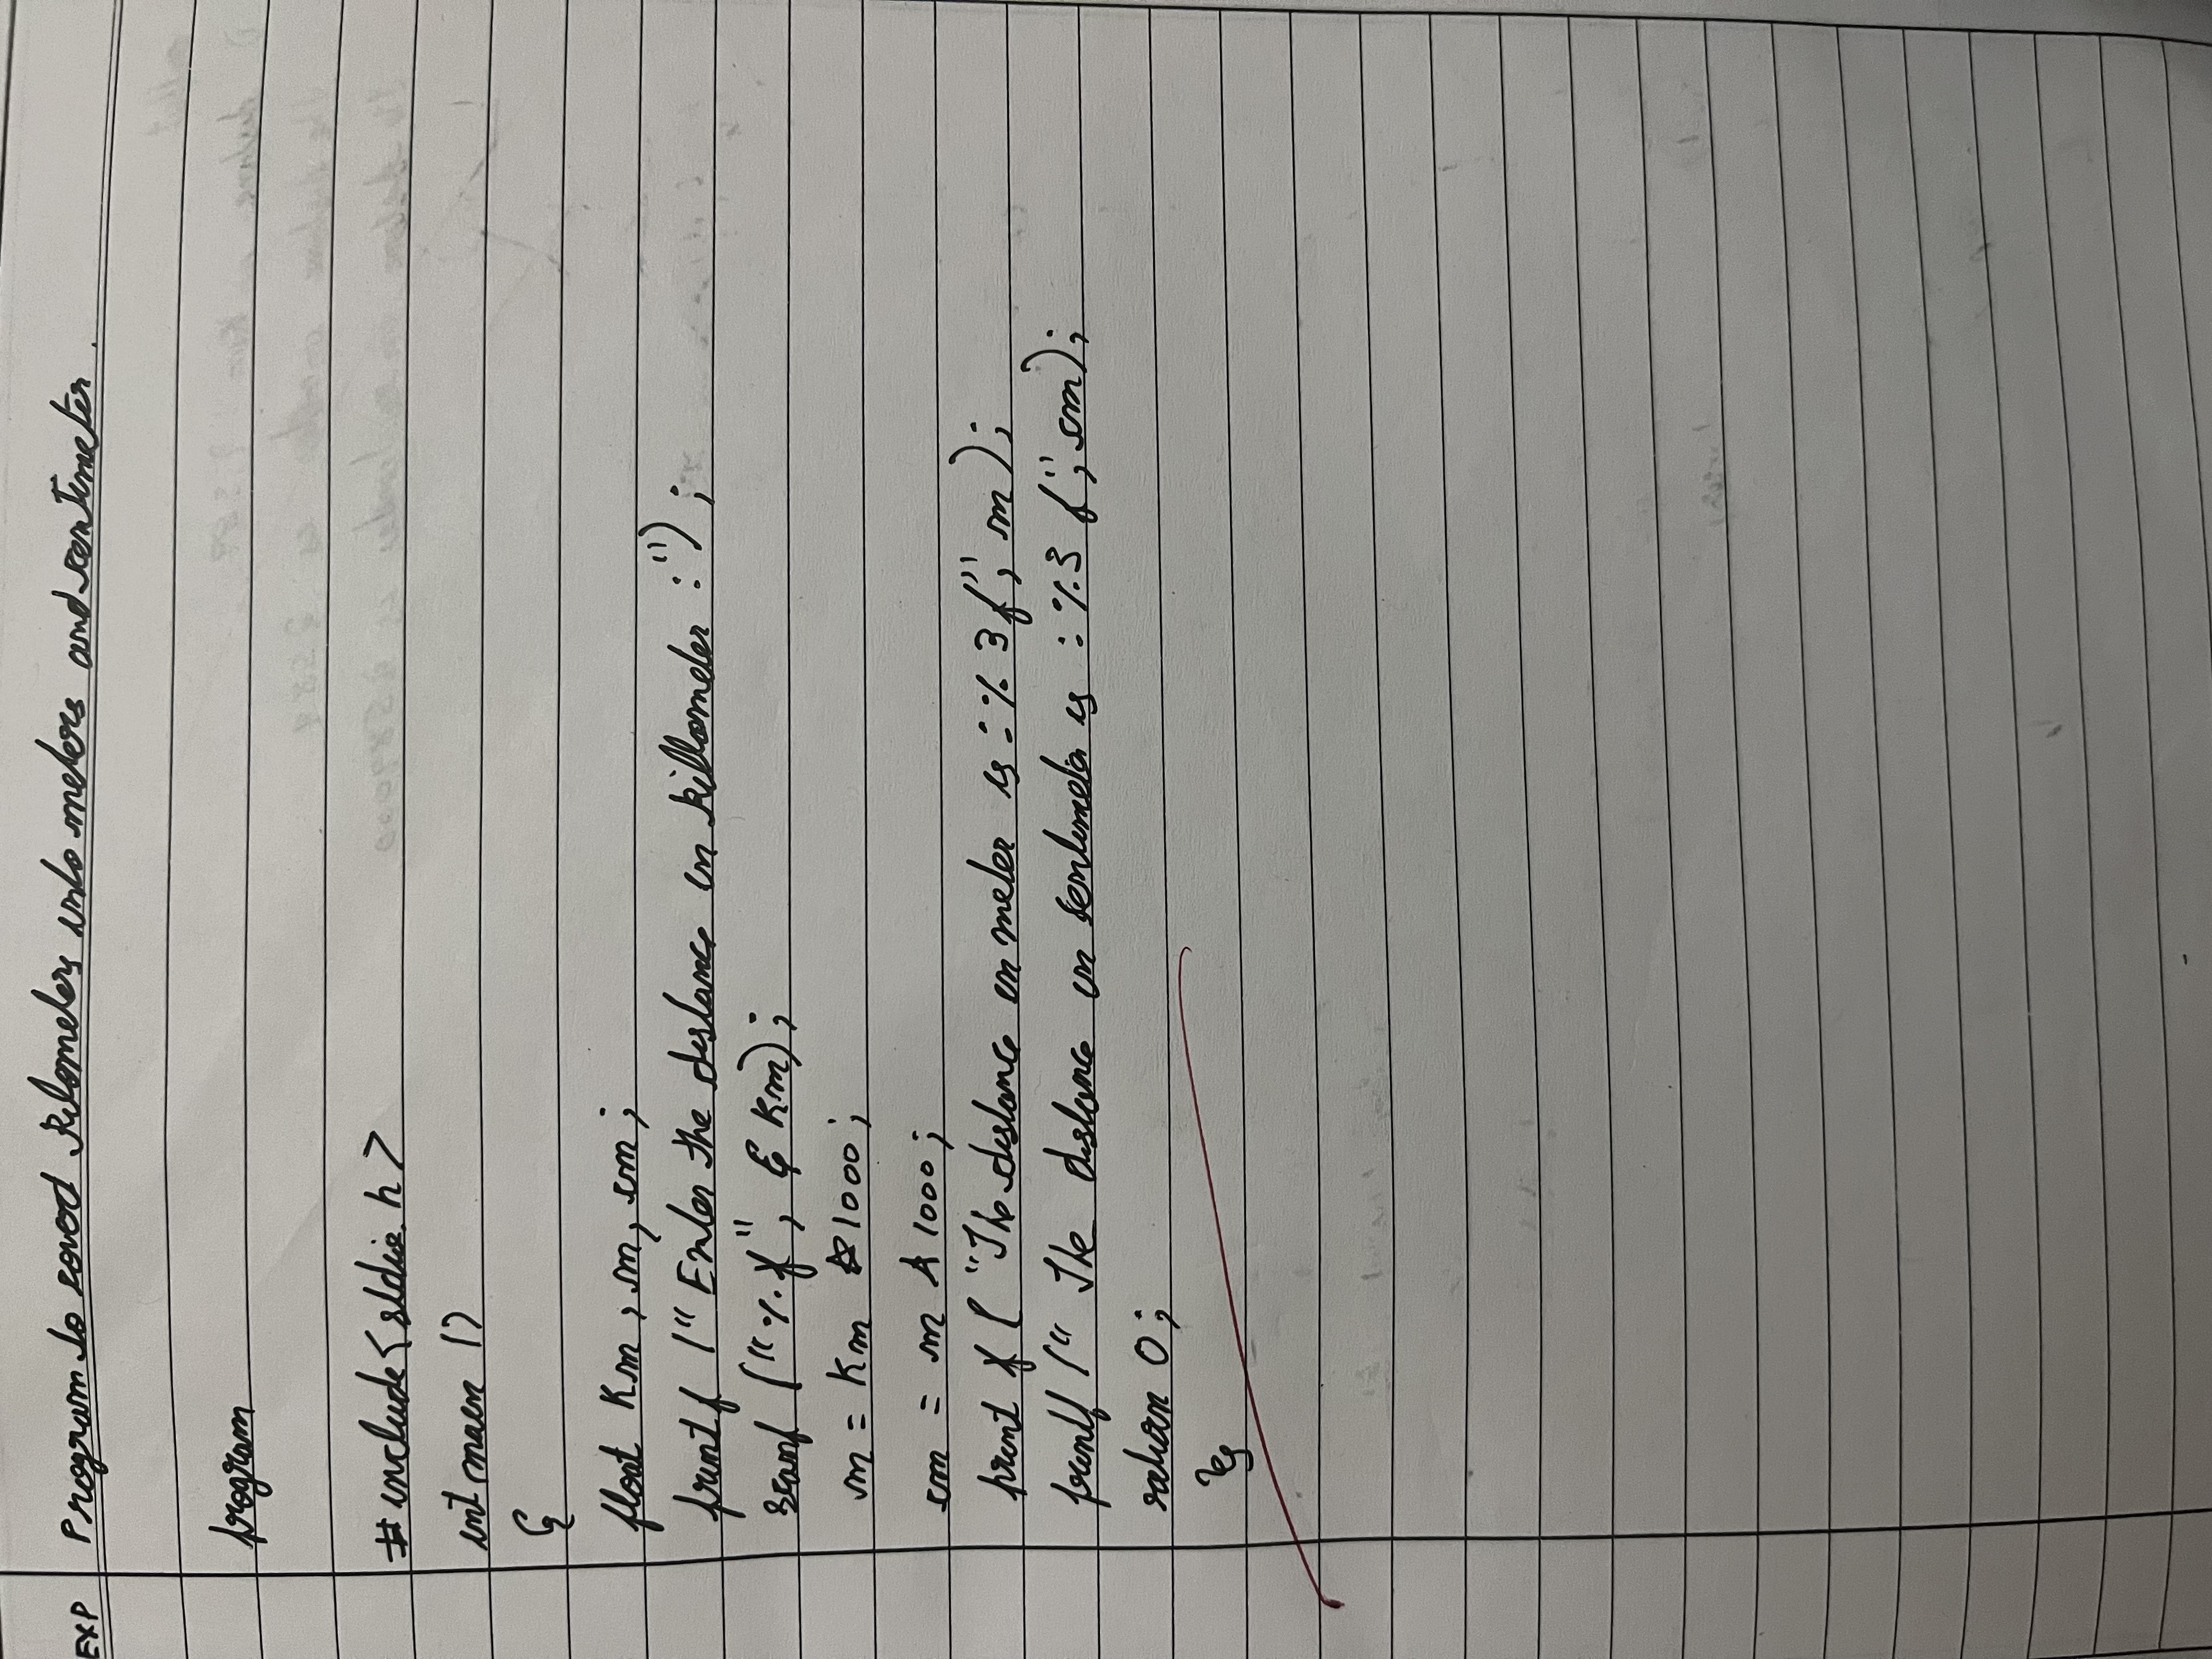 EXP Program to coverd Kilometers into meters and centimeter.
program
#include<stdio.h>
int main ()
{
float Km, m, cm;
printf ("Enter the distance in killometer :");
scanf ("%f", & Km);
m = Km *1000;
cm = m * 1000;
print f ( "The distance in meter is : % 3f", m );
printf (" The distance in sentimeter is : %3 f", cm);
return 0;
}